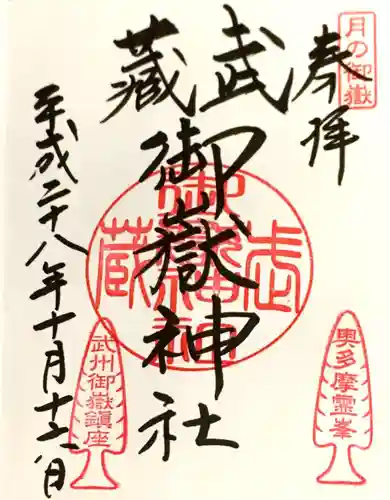 月の御嶽
奉拝
武蔵
御嶽神社
平成二十八年十月十六日
武州御嶽鎮座
奥多摩霊峯